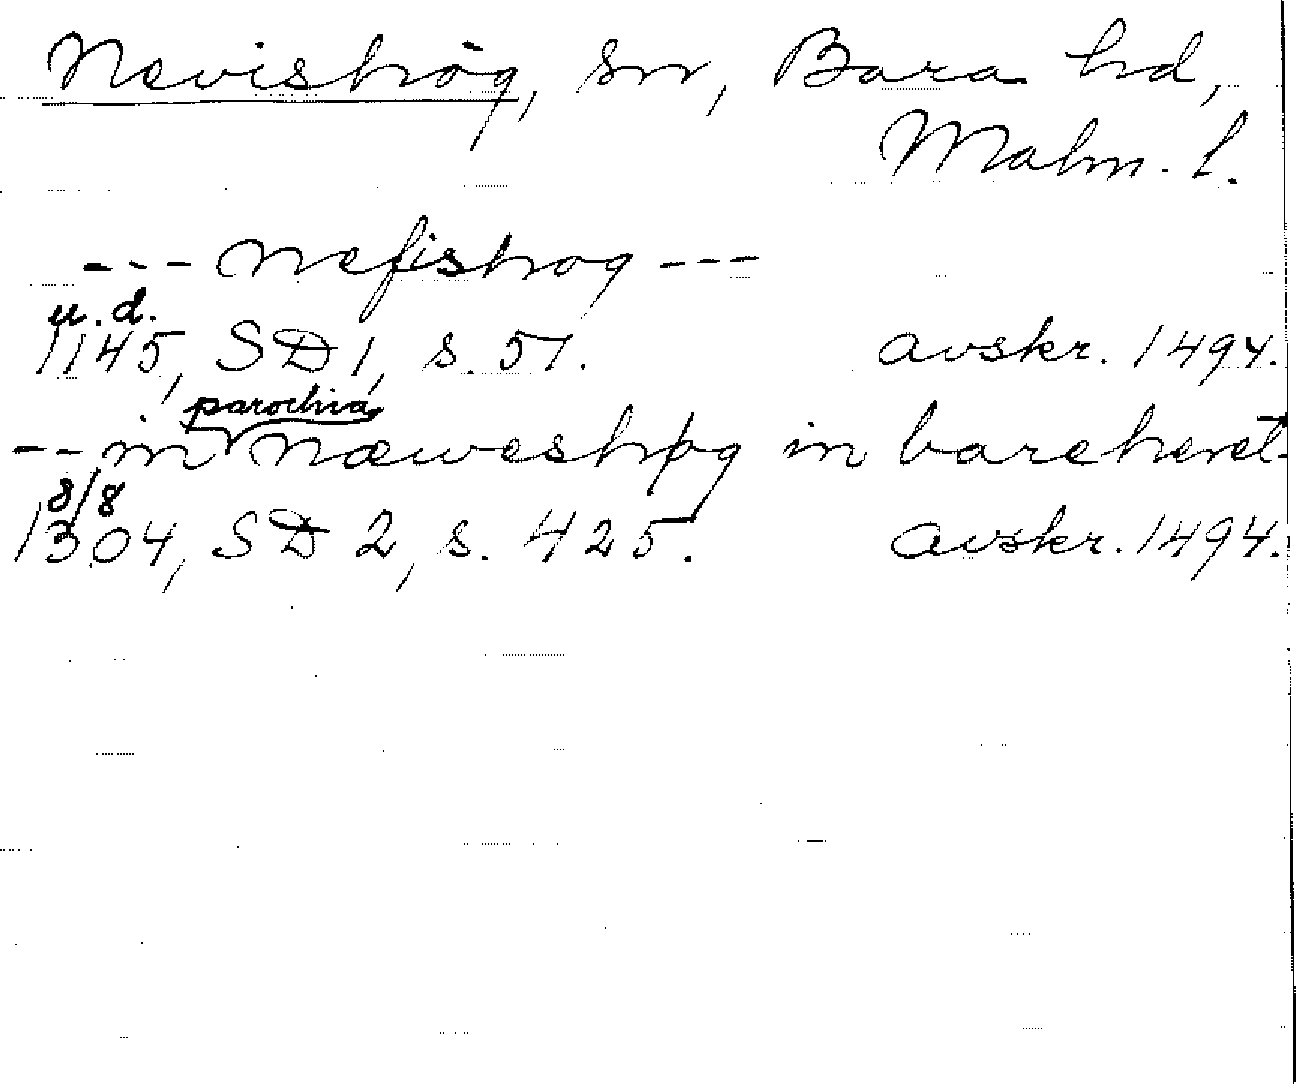 Nevishög, sn, Bara hd,
Malm. l.
--- nefishog ---
u.d.
1145, SD 1, s. 51. avskr. 1494.
parochia
-- in næweshøg in bareheret-
8/8
1304, SD 2, s. 425. avskr. 1494.